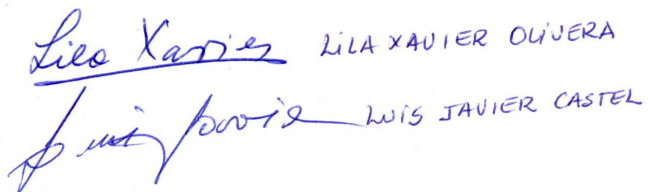 Lila Xavier LiLA XAVIER OLIVERA
Luis Javier LUIS JAVIER CASTEL